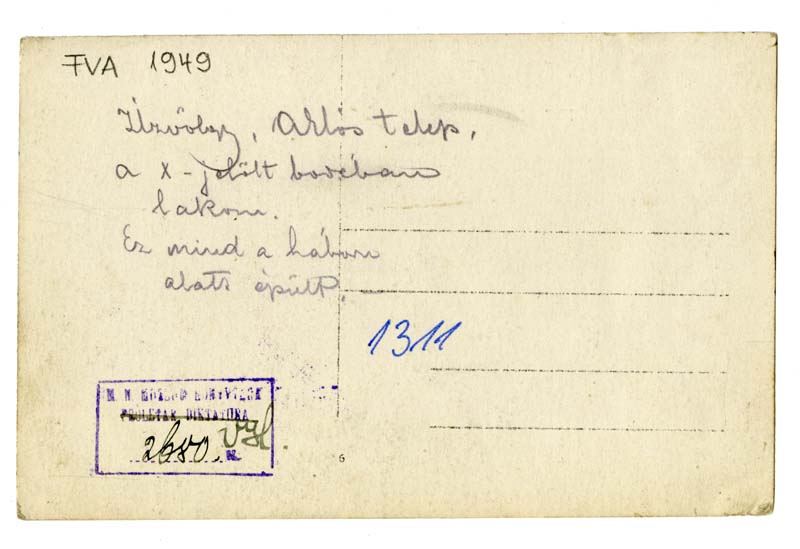 FVA 1949
Úzvölgy, Alsó telep,
a x-jelölt bodéban
lakom.
Ez mind a háború
alatt épült.
1311
M. N. MÚZEUM KÖNYVTÁRA
PROLETÁR DIKTATURA
2680.
6